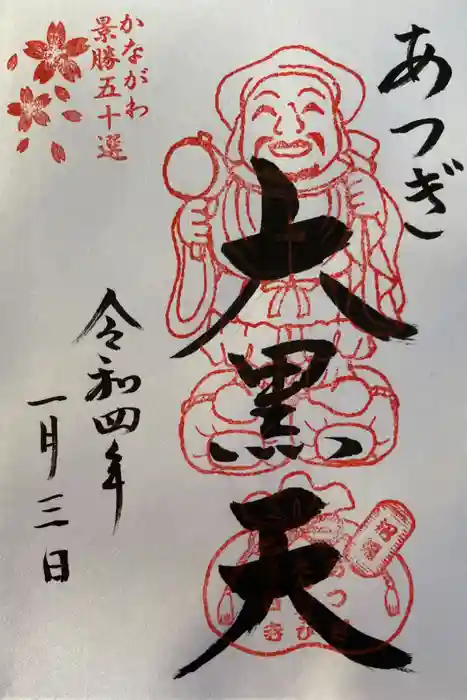 あつぎ
かながわ
景勝五十選
大黒天
令和四年
一月三日